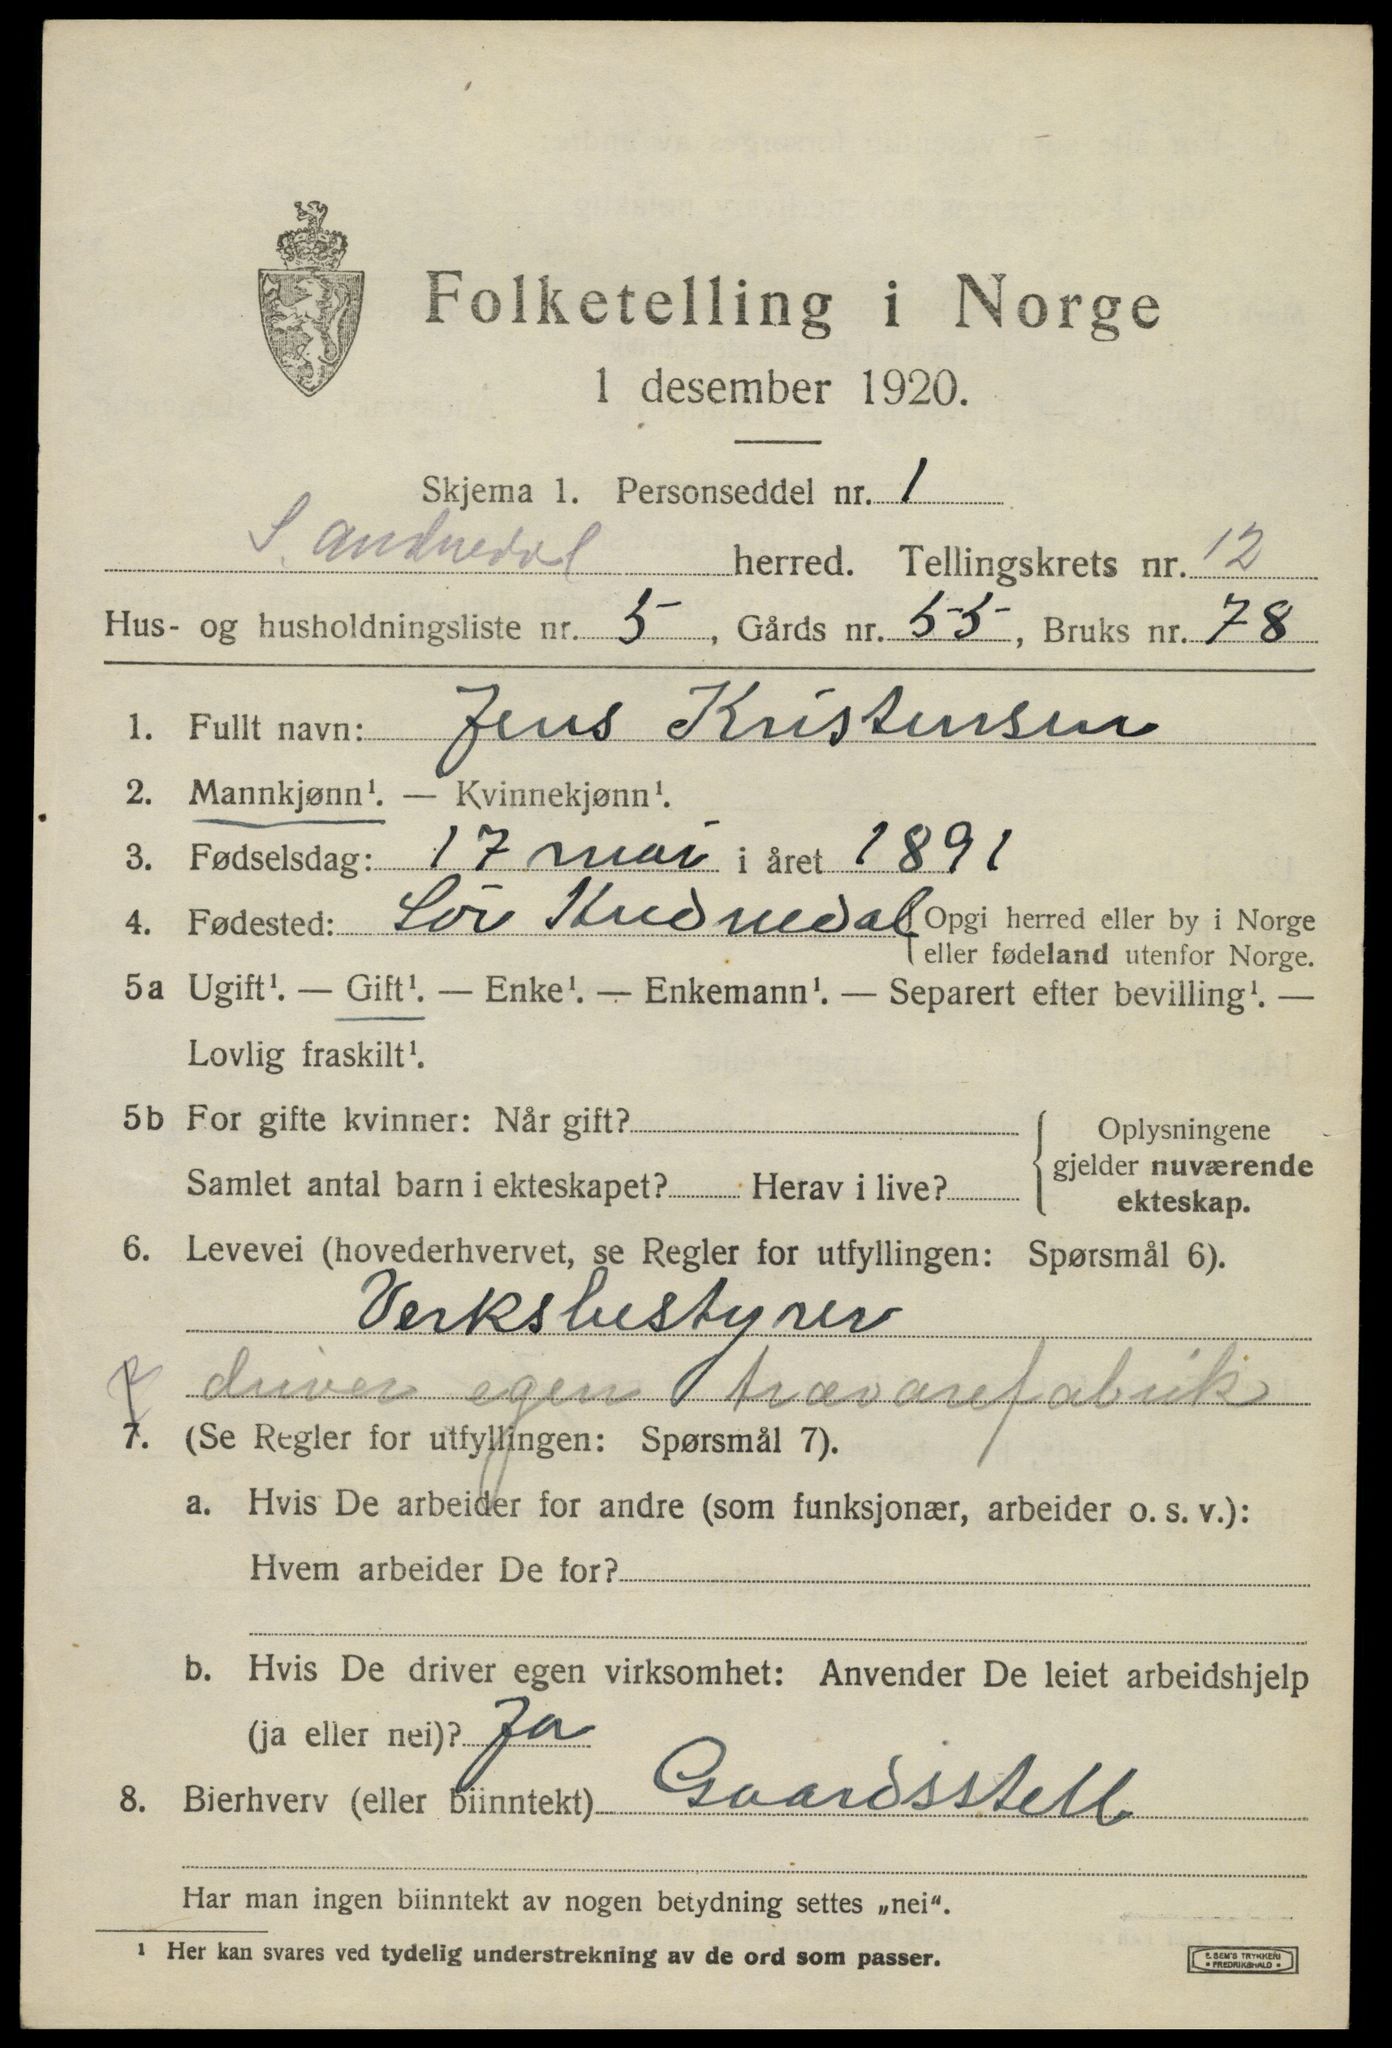 Folketelling i Norge
1 desember 1920.
Skjema 1. Personseddel nr. 1
S. Audnedal herred. Tellingskrets nr. 12
Hus- og husholdningsliste nr. 5, Gårds nr. 55, Bruks nr. 78
1. Fullt navn: Jens Kristensen
2. Mannkjønn¹. — Kvinnekjønn¹.
3. Fødselsdag: 17 mai i året 1891
4. Fødested: Sör Audnedal { Opgi herred eller by i Norge
eller fødeland utenfor Norge.
5a Ugift¹. — Gift¹. — Enke¹. — Enkemann¹. — Separert efter bevilling¹. —
Lovlig fraskilt¹.
5b For gifte kvinner: Når gift?
Samlet antal barn i ekteskapet? Herav i live?
{ Oplysningene
gjelder nuværende
ekteskap.
6. Levevei (hovederhvervet, se Regler for utfyllingen: Spørsmål 6).
Verksbestyrer
driver egen trævarefabrik
7. (Se Regler for utfyllingen: Spørsmål 7).
a. Hvis De arbeider for andre (som funksjonær, arbeider o. s. v.):
Hvem arbeider De for?
b. Hvis De driver egen virksomhet: Anvender De leiet arbeidshjelp
(ja eller nei)? Ja
8. Bierhverv (eller biinntekt) Gaardsstell
Har man ingen biinntekt av nogen betydning settes „nei“.
¹ Her kan svares ved tydelig understrekning av de ord som passer.
E. SEM'S TRYKKERI
• FREDRIKSHALD •